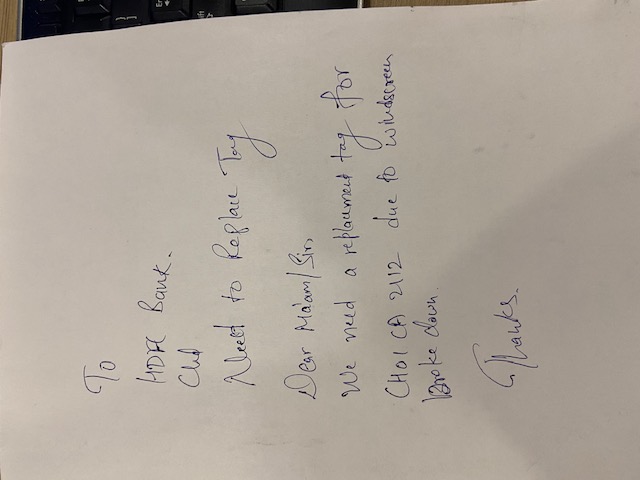 To
HDFC Bank.
Chd
Need to Replace Tag
Dear Ma'am/Sir,
We need a replacement tag for
CH01 CA 2112 due to windscreen
Broke down.
Thanks.